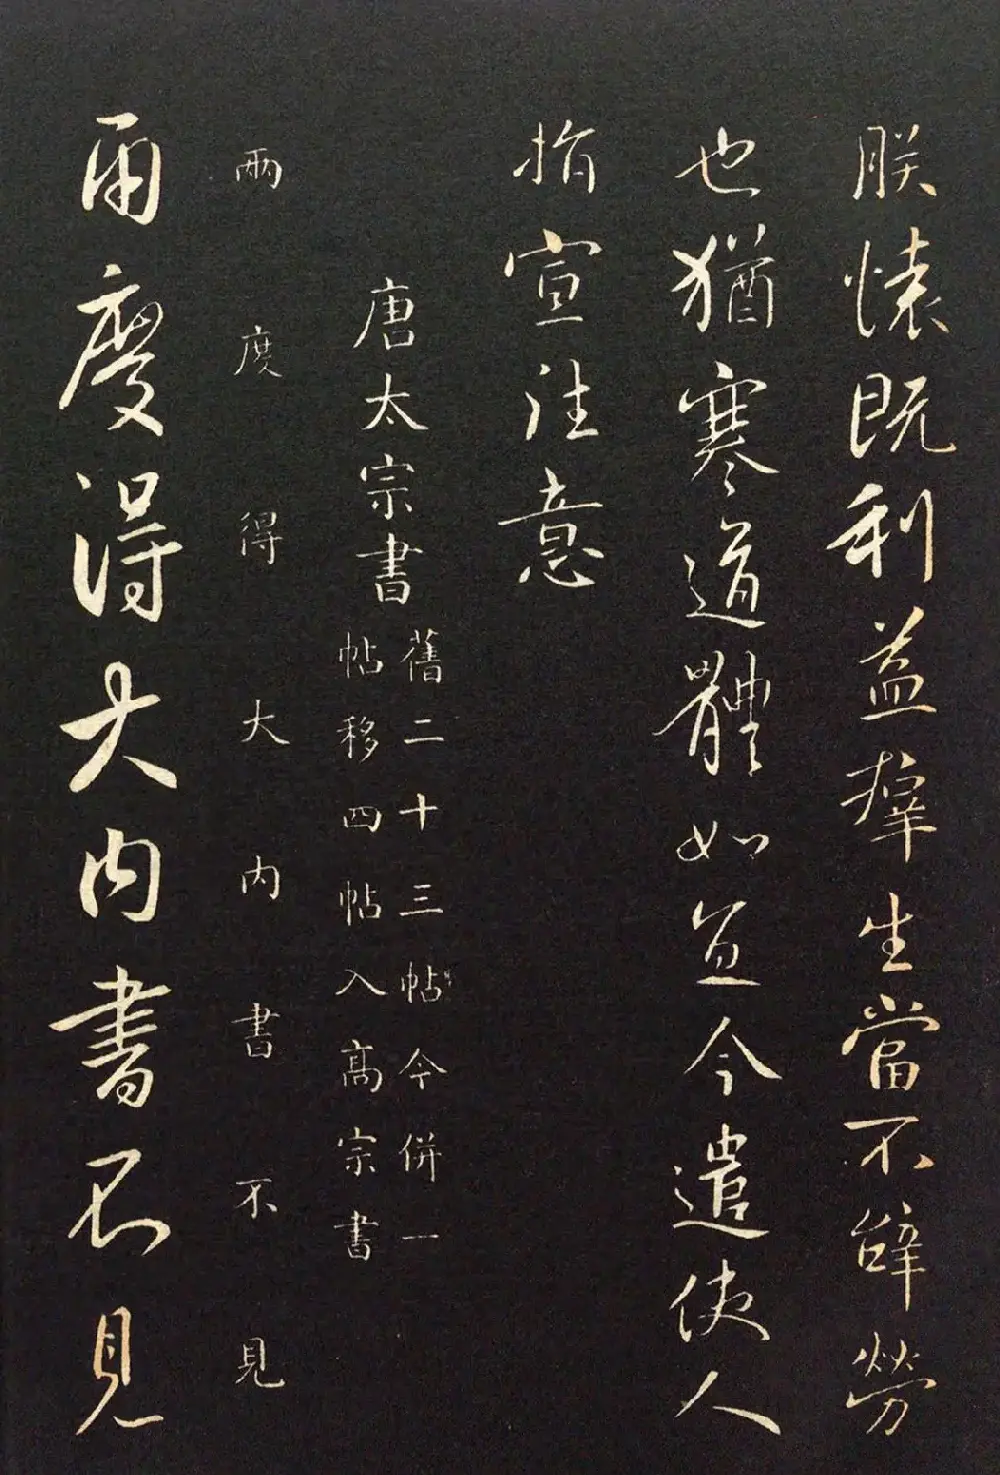 朕懷既利益群生當不辭勞
也猶寒道體如宜今遣使人
指宣往意
唐太宗書
舊二十三帖今併一
帖移四帖入高宗書
兩度得大内書不見
兩度得大内書不見